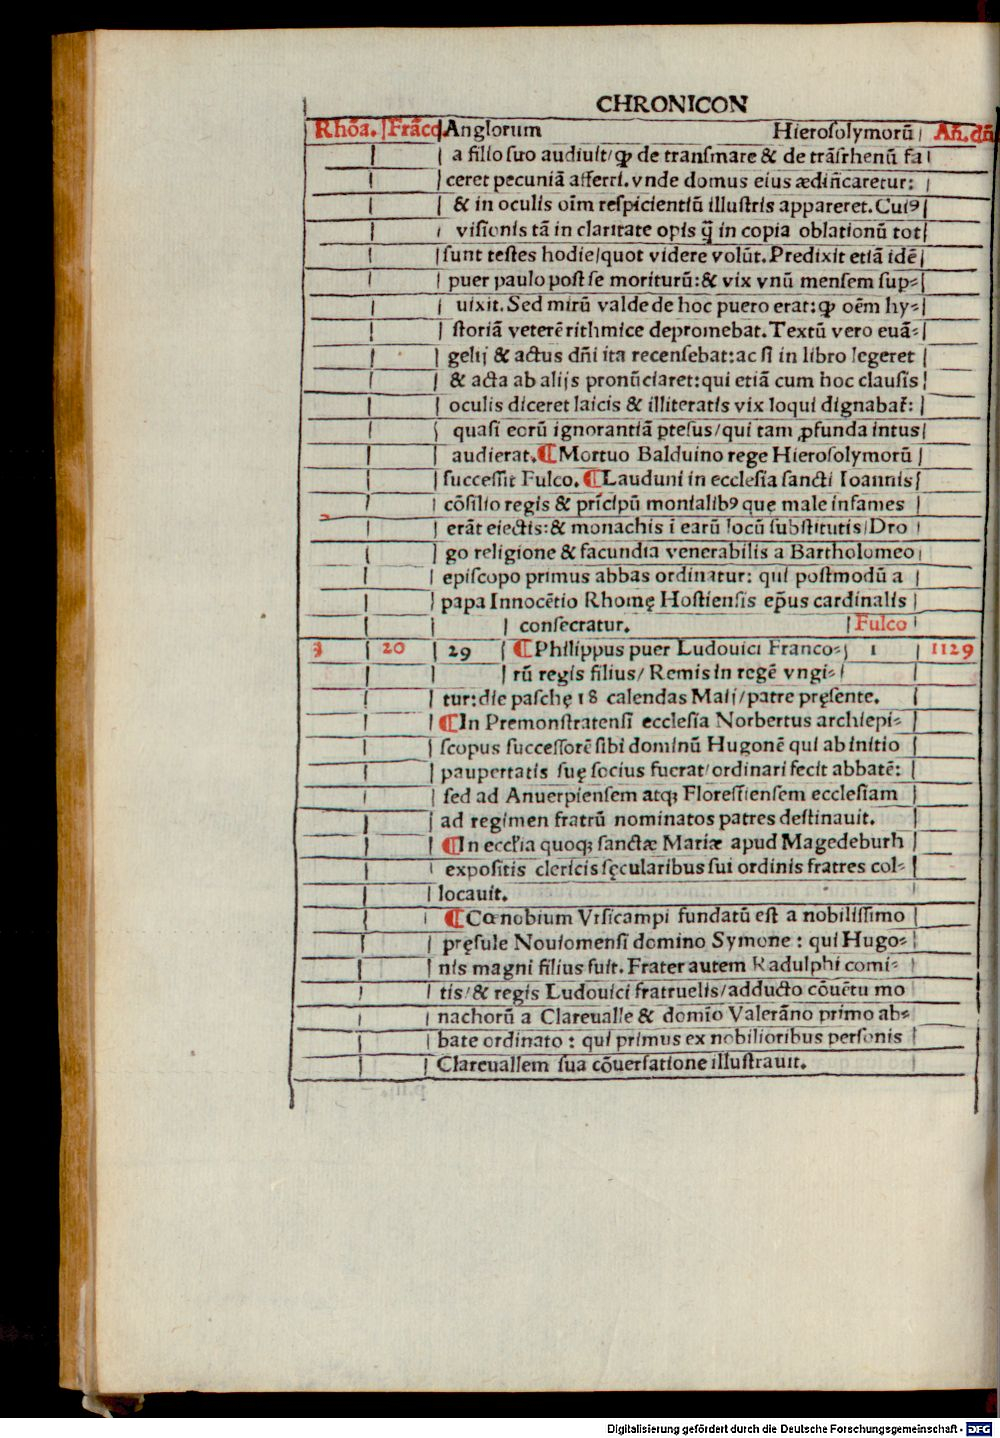 CHRONICON
Rhõa. Frãco Anglorum Hierosolymorũ Añ. dñi
a filio suo audiuit/ꝙ de transmare & de trãsrhenũ fa
ceret pecuniã afferri. vnde domus eius ædificaretur:
& in oculis oĩm respicientiũ illustris appareret. Cuiꝰ
visionis tã in claritate opis q̃ in copia oblationũ tot
sunt testes hodie/quot videre volũt. Predixit etiã idẽ
puer paulo post se moriturũ: & vix vnũ mensem sup⸗
uixit. Sed mirũ valde de hoc puero erat: ꝙ oẽm hy⸗
storiã veterẽ rithmice depromebat. Textũ vero euã⸗
gelij & actus dñi ita recensebat: ac si in libro legeret
& acta ab alijs pronũciaret: qui etiã cum hoc clausis
oculis diceret laicis & illiteratis vix loqui dignabat̃:
quasi eorũ ignorantiã ptesus/qui tam ꝓfunda intus
audierat. ¶Mortuo Balduino rege Hierosolymorũ
successit Fulco. ¶Lauduni in ecclesia sancti Ioannis
cõsilio regis & prĩcipũ monialibꝰ quę male infames
erãt eiectis: & monachis ĩ earũ locũ substitutis/Dro
go religione & facundia venerabilis a Bartholomeo
episcopo primus abbas ordinatur: qui postmodũ a
papa Innocẽtio Rhomę Hostiensis ep̃us cardinalis
consecratur. Fulco
3 20 29 ¶Philippus puer Ludouici Franco⸗ 1 1129
rũ regis filius/ Remis in regẽ vngi⸗
tur: die paschę 18 calendas Maij/patre pręsente.
¶In Premonstratensi ecclesia Norbertus archiepi⸗
scopus successorẽ sibi dominũ Hugonẽ qui ab initio
paupertatis suę socius fuerat/ordinari fecit abbatẽ:
sed ad Anuerpiensem atqꝫ Floressiensem ecclesiam
ad regimen fratrũ nominatos patres destinauit.
¶In eccl̃ia quoqꝫ sanctæ Mariæ apud Magedeburh
expositis clericis sęcularibus sui ordinis fratres col⸗
locauit.
¶Cœnobium Vrsicampi fundatũ est a nobilissimo
pręsule Nouiomensi domino Symone: qui Hugo⸗
nis magni filius fuit. Frater autem Radulphi comi⸗
tis/& regis Ludouici fratruelis/adducto cõuẽtu mo
nachorũ a Clareualle & domĩo Valerãno primo ab⸗
bate ordinato: qui primus ex nobilioribus personis
Clareuallem sua cõuersatione illustrauit.
Digitalisierung gefördert durch die Deutsche Forschungsgemeinschaft - DFG